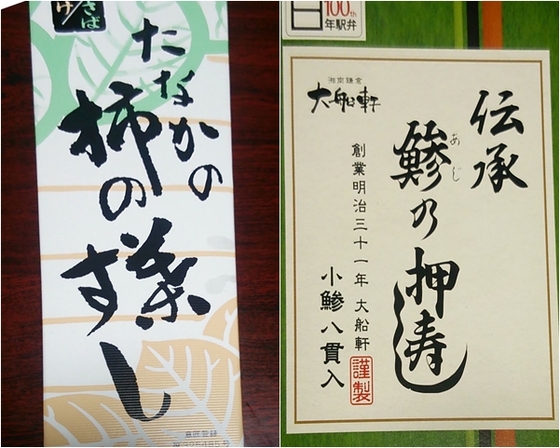 さば
たなかの
柿の葉
すし
意匠登録
日
100th
年駅弁
湘南鎌倉
大船軒
伝承
鯵の押寿し
あじ
創業明治三十一年 大船軒
謹製
小鯵八貫入